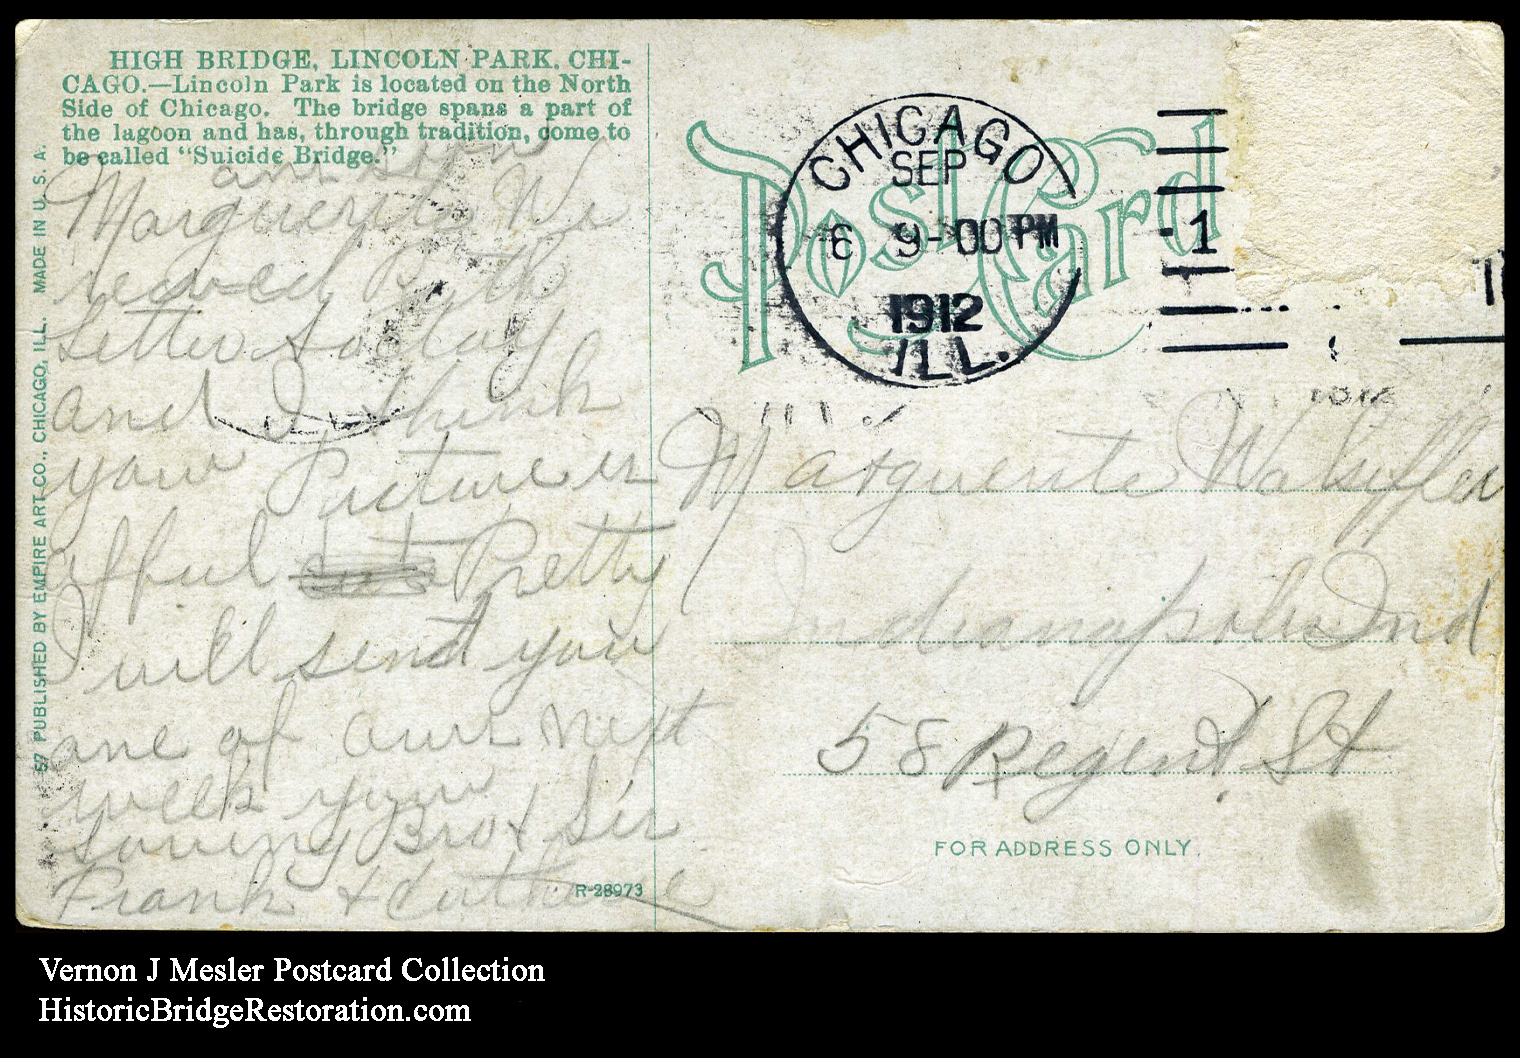 HIGH BRIDGE, LINCOLN PARK, CHI-
CAGO.—Lincoln Park is located on the North
Side of Chicago. The bridge spans a part of
the lagoon and has, through tradition, come to
be called "Suicide Bridge."
Marguerite We
recived both
letters to day
and I think
your Picture is
afful Pretty
I will send you
one of ours next
week your
loving Bro & Sis
Frank & Cathrine
57 PUBLISHED BY EMPIRE ART CO., CHICAGO, ILL. MADE IN U. S. A.
R-28973
Post Card
CHICAGO
SEP
6 9-00 PM
1912
ILL.
1
Marguerite
Indianapolis Ind
58 Regent St
FOR ADDRESS ONLY.
Vernon J Mesler Postcard Collection
HistoricBridgeRestoration.com